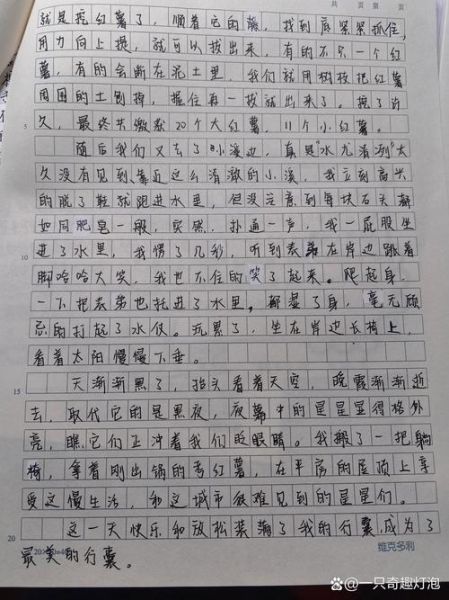 共 页 第 页
就是挖红薯了，顺着它的藤，找到底紧紧抓住，
用力向上提，就可以拔出来，有的不只一个红
薯，有的会断在泥土里，我们就用树枝把红薯
周围的土刨掉，握住再一拔就出来了。挖了许
5
久，最终共缴获20个大红薯，11个小红薯。
随后我们又去了小溪边，真是"水尤清冽"太
久没有见到靠近这么清澈的小溪，我立刻高兴
的脱了鞋就跑进水里，但没注意到每块石头都
如同肥皂一般，突然，扑通一声，我一屁股坐
10
进了水里，我愣了几秒，听到表弟在岸边跺着
脚哈哈大笑，我也不住的笑了起来。爬起身，
一下把表弟也拖进了水里。都湿了身，毫无顾
忌的打起了水仗。玩累了，坐在岸边长椅上，
看着太阳慢慢下垂。
15
天渐渐黑了，抬头看着天空，晚霞渐渐逝
去，取代它的是黑夜，夜幕中的星星显得格外
亮，瞧它们正冲着我们眨眼睛。我搬了一把躺
椅，拿着刚出锅的烤红薯，在平房的屋顶上享
受这慢生活，和这城市很难见到的星星们。
20
这一天快乐和放松装满了我的行囊成为了
最美的行囊。
维克多利
@一只奇趣灯泡